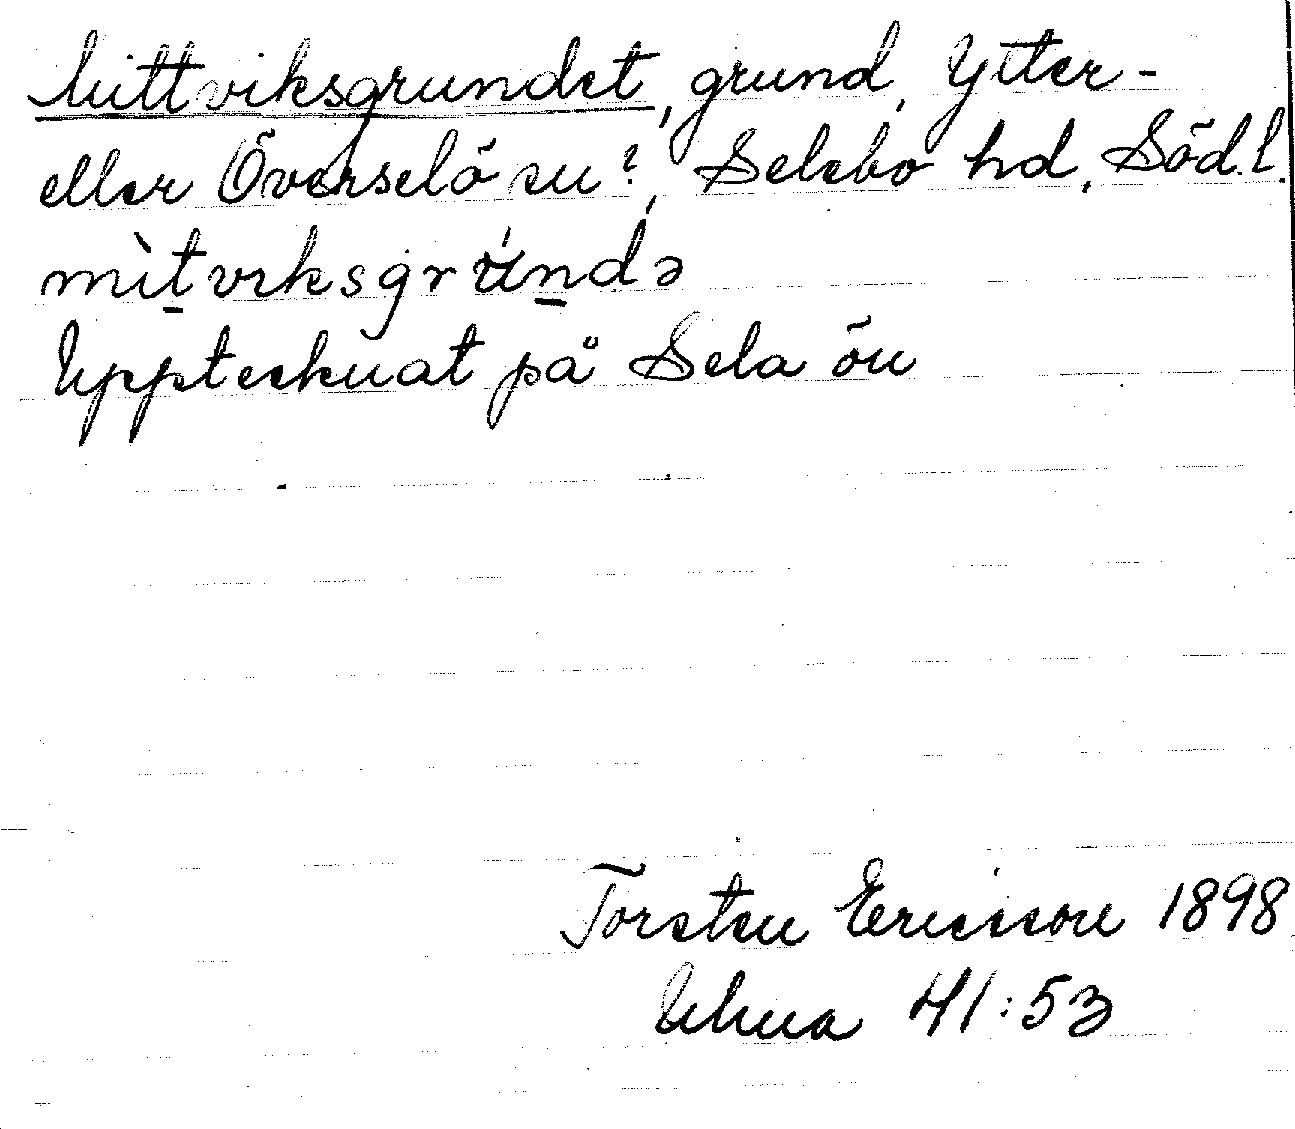 Mittviksgrundet, grund, Ytter-
eller Överselö sn?, Selebo hd, Södl.
mìt̲viksgrún̲də
Upptecknat på Sela ön
Torsten Ericsson 1898
Ukna 41:53